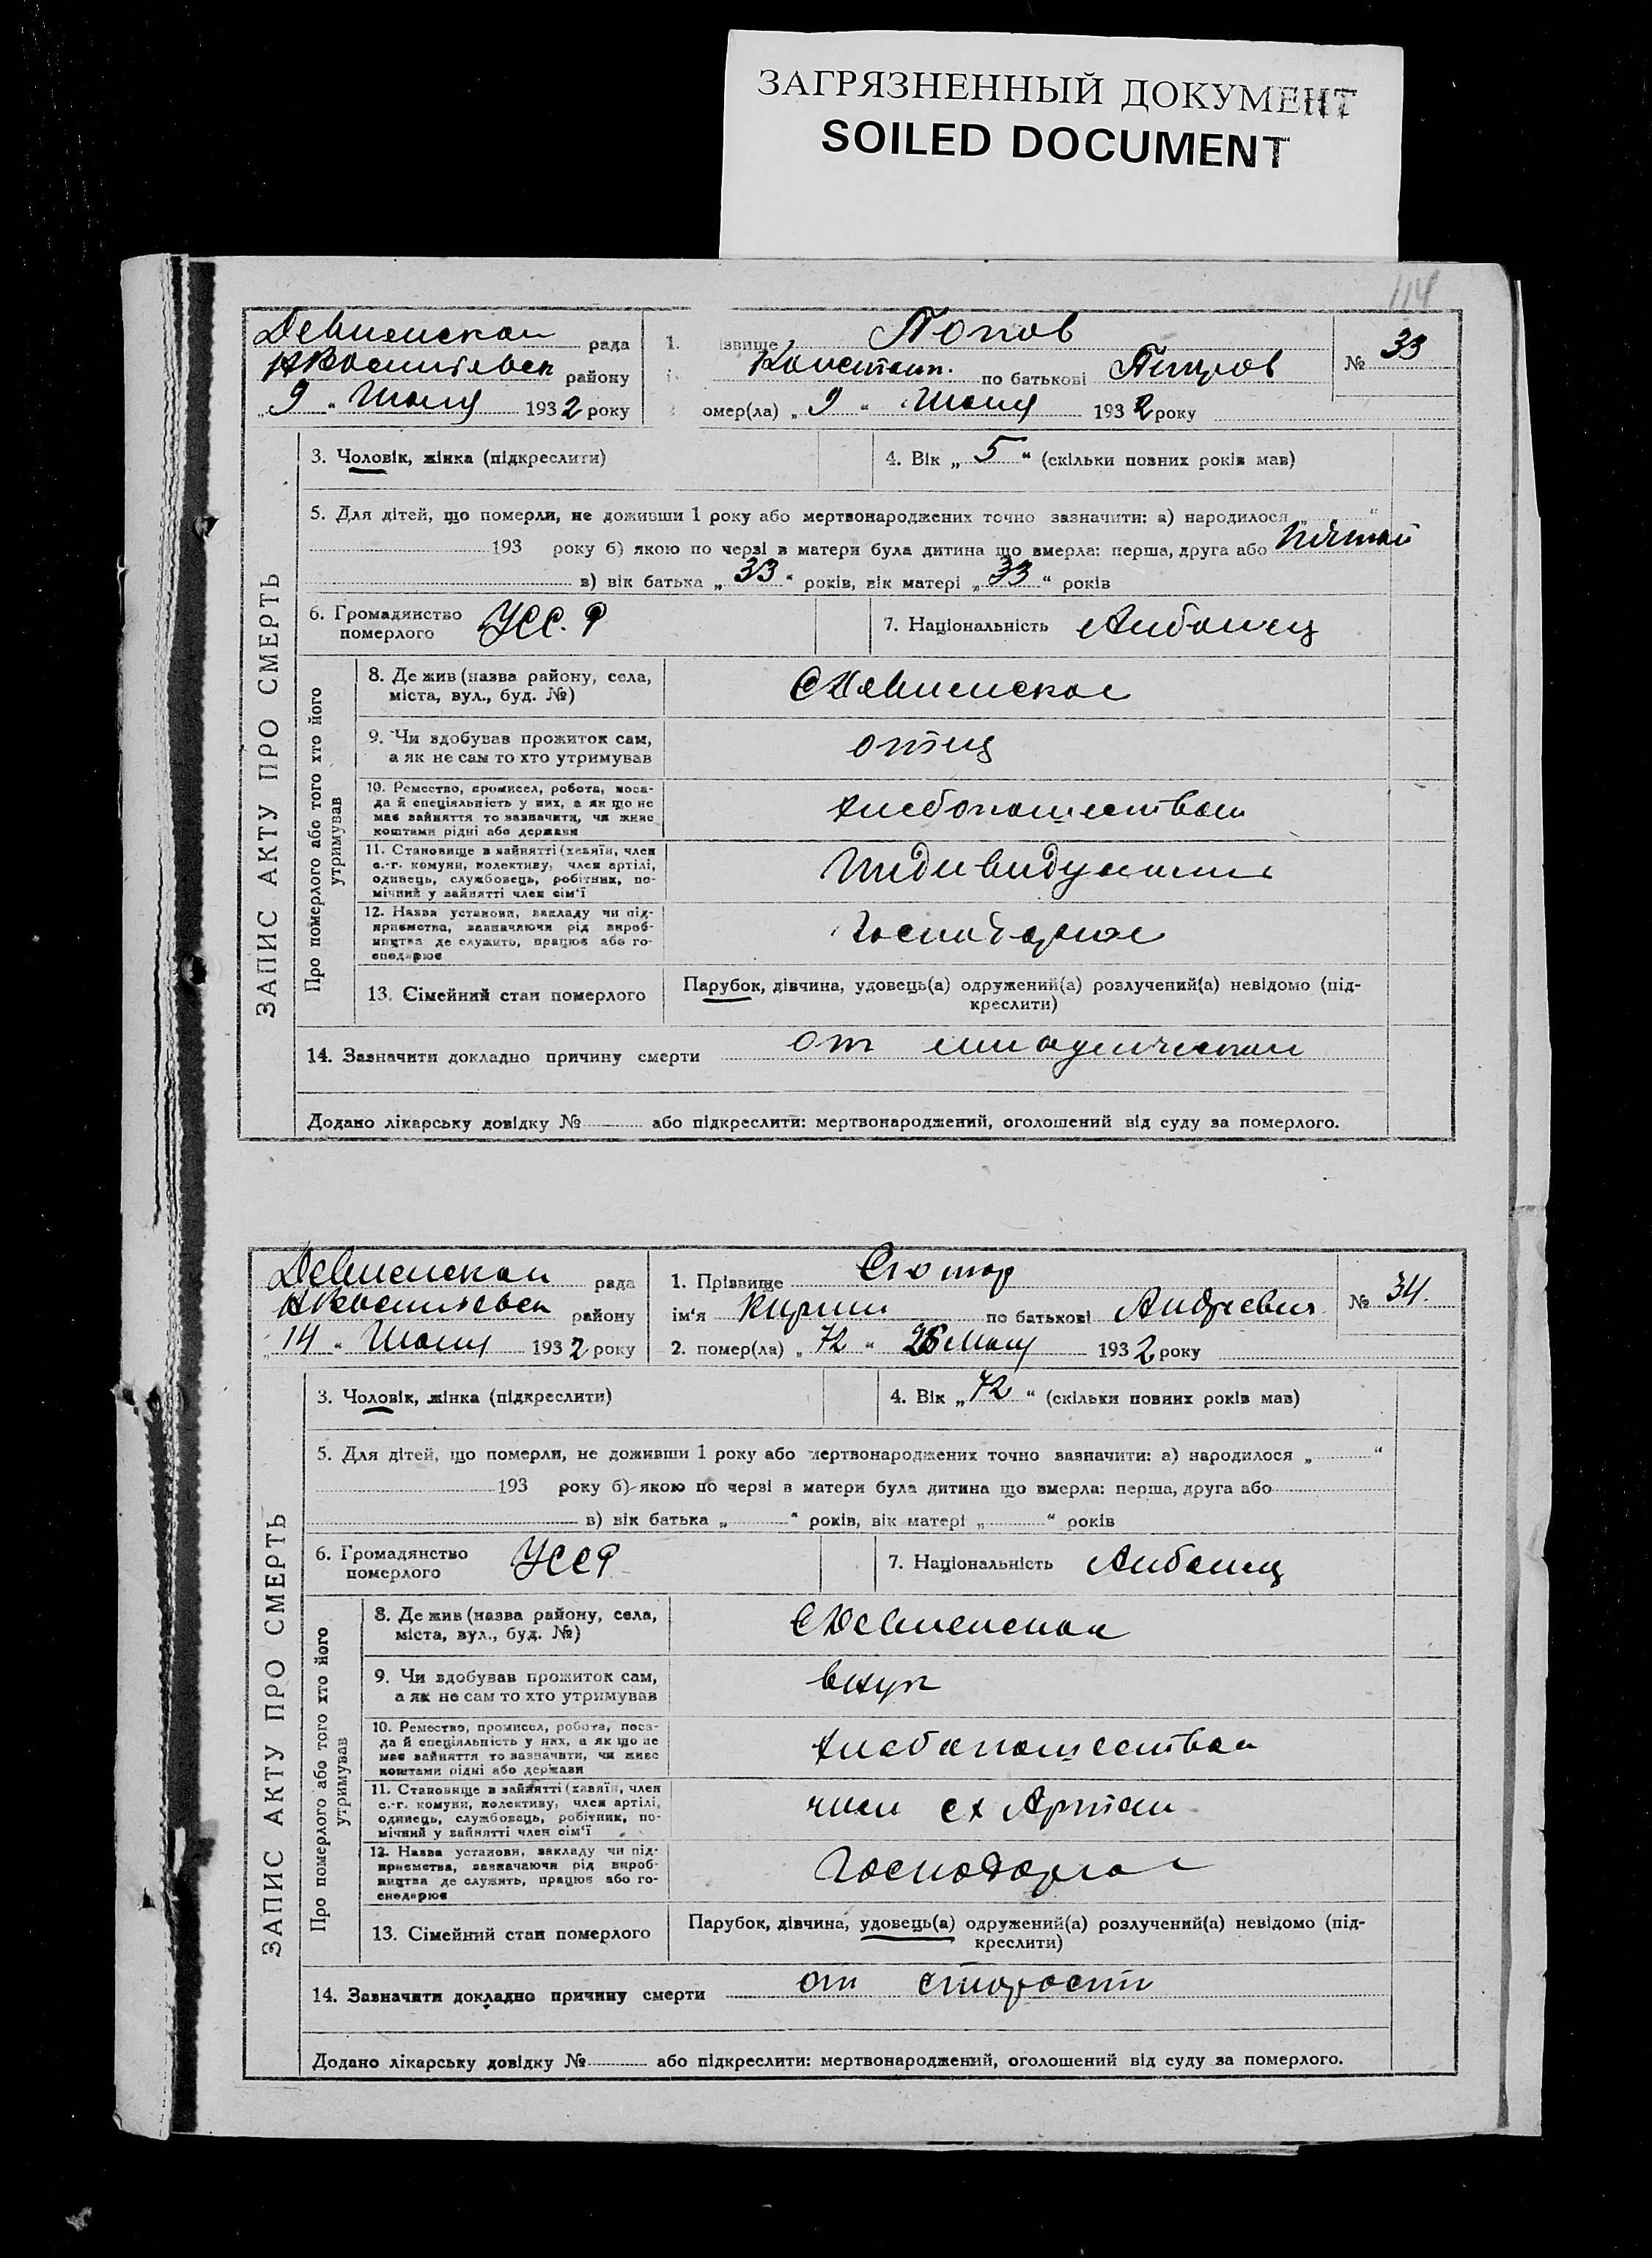 ЗАГРЯЗНЕННЫЙ ДОКУМЕНТ
SOILED DOCUMENT
114
Девненская рада
НВасильевск району
„9“ Июня 1932 року
1. ізвище Попов
Констант. по батькові Петров
омер(ла) „9“ Июня 1932 року
№ 33
ЗАПИС АКТУ ПРО СМЕРТЬ
3. Чоловік, жінка (підкреслити)
4. Вік „5“ (скільки повних років мав)
5. Для дітей, що померли, не доживши 1 року або мертвонароджених точно зазначити: а) народилося „ “
193 року б) якою по черзі в матери була дитина що вмерла: перша, друга або пятай
в) вік батька „33“ років, вік матері „33“ років
6. Громадянство
померлого УСС.Р
7. Національність Албанец
Про померлого або того хто його
утримував
8. Де жив (назва району, села,
міста, вул., буд. №)
9. Чи здобував прожиток сам,
а як не сам то хто утримував
отец
10. Ремество, промисел, робота, поса-
да й спеціяльність у них, а як що не
має зайняття то зазначити, чи живе
коштами рідні або держави
хлебопашеством
11. Становище в зайнятті (хазяїн, член
с.-г. комуни, колективу, член артілі,
одинець, службовець, робітник, по-
мічний у зайнятті член сім'ї
12. Назва установи, закладу чи під-
приємства, зазначаючи рід вироб-
ництва де служить, працює або го-
сподарює
13. Сімейний стан померлого
Парубок, дівчина, удовець(а) одружений(а) розлучений(а) невідомо (під-
креслити)
14. Зазначити докладно причину смерти от
Додано лікарську довідку № або підкреслити: мертвонароджений, оголошений від суду за померлого.
Девненская рада
НВасильевск району
„14“ Июня 1932 року
1. Прізвище Стотар
ім'я Кирил по батькові Андреевич
2. помер(ла) „72“ 26 Мая 1932 року
№ 34.
ЗАПИС АКТУ ПРО СМЕРТЬ
3. Чоловік, жінка (підкреслити)
4. Вік „72“ (скільки повних років мав)
5. Для дітей, що померли, не доживши 1 року або мертвонароджених точно зазначити: а) народилося „ “
193 року б) якою по черзі в матери була дитина що вмерла: перша, друга або
в) вік батька „ “ років, вік матері „ “ років
6. Громадянство
померлого УССР
7. Національність Албанец
Про померлого або того хто його
утримував
8. Де жив (назва району, села,
міста, вул., буд. №)
С Девненская
9. Чи здобував прожиток сам,
а як не сам то хто утримував
внук
10. Ремество, промисел, робота, поса-
да й спеціяльність у них, а як що не
має зайняття то зазначити, чи живе
коштами рідні або держави
хлебопашеством
11. Становище в зайнятті (хазяїн, член
с.-г. комуни, колективу, член артілі,
одинець, службовець, робітник, по-
мічний у зайнятті член сім'ї
член сх Артели
12. Назва установи, закладу чи під-
приємства, зазначаючи рід вироб-
ництва де служить, працює або го-
сподарює
13. Сімейний стан померлого
Парубок, дівчина, удовець(а) одружений(а) розлучений(а) невідомо (під-
креслити)
14. Зазначити докладно причину смерти от старости
Додано лікарську довідку № або підкреслити: мертвонароджений, оголошений від суду за померлого.